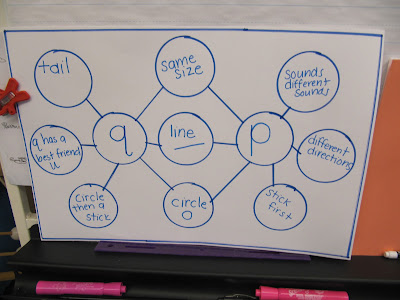 tail
same
size
sounds
different
sounds
q has a
best friend
u
q
line
p
different
directions
circle
then a
stick
circle
O
stick
first